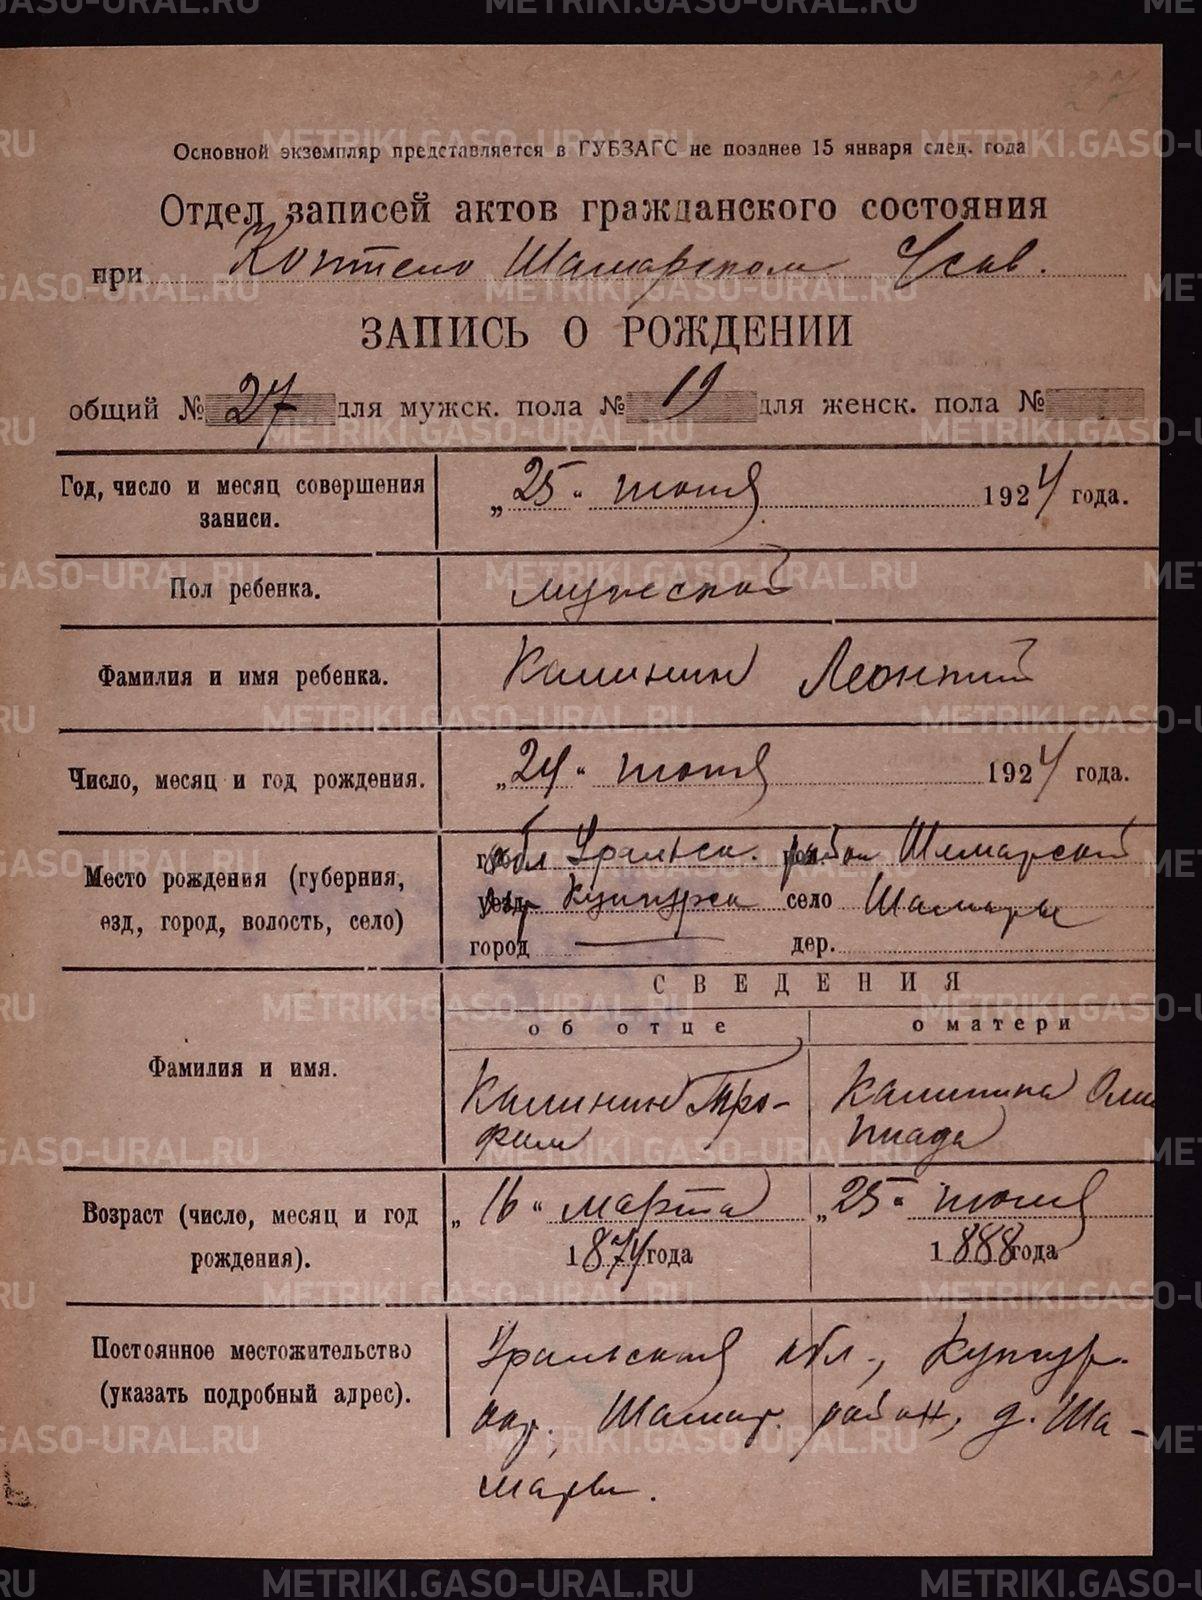 27
Основной экземпляр представляется в ГУБЗАГС не позднее 15 января след. года
Отдел записей актов гражданского состояния
при Шамарском
ЗАПИСЬ О РОЖДЕНИИ
общий № 27 для мужск. пола № 19 для женск. пола №
Год, число и месяц совершения записи.
„25“ июня 1924 года.
Пол ребенка.
мужской
Фамилия и имя ребенка.
Калинин Леонтий
Число, месяц и год рождения.
„24“ июня 1924 года.
Место рождения (губерния,
езд, город, волость, село)
обл Уральск. район Шамарской
окр Кунгурск село Шамары
город — дер.
СВЕДЕНИЯ
об отце
о матери
Фамилия и имя.
Калинин Тро-
фим
Калинина Олим
пиада
Возраст (число, месяц и год
рождения).
„16“ марта
1874 года
„25“ июля
1888 года
Постоянное местожительство
(указать подробный адрес).
Уральская обл., Кунгур.
окр., Шамар. район, д. Ша-
мары.
METRIKI.GASO-URAL.RU